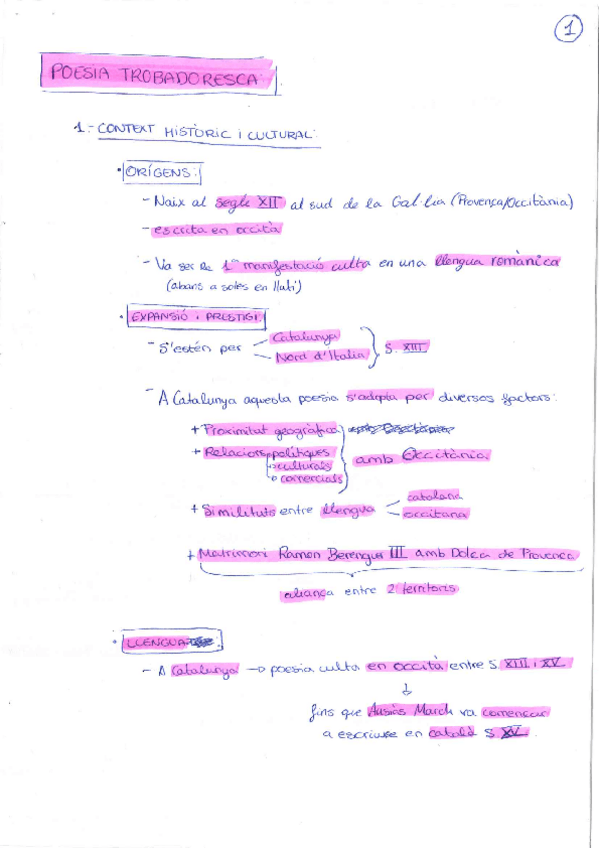 1
POESIA TROBADORESCA:
1.- CONTEXT HISTÒRIC I CULTURAL:
• ORÍGENS:
- Naix al segle XII al sud de la Gal·lia (Provença/Occitània)
- escrita en occità
- Va ser la 1ª manifestació culta en una llengua romànica
(abans a soles en llatí)
• EXPANSIÓ i PRESTIGI:
- S'estén per Catalunya
Nord d'Itàlia
S. XIII
- A Catalunya aquesta poesia s'adopta per diversos factors:
+ Proximitat geogràfica
+ Relacions polítiques
culturals
comercials
amb Occitània
+ Similituts entre llengua catalana
occitana
+ Matrimoni Ramon Berenguer III amb Dolça de Provença
aliança entre 2 territoris
• LLENGUA
- A Catalunya → poesia culta en occità entre S. XIII i XV
↓
fins que Ausiàs March va començar
a escriure en català S. XV.